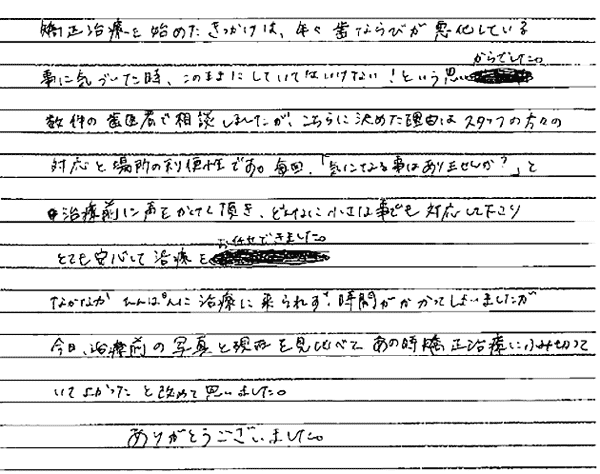 矯正治療を始めたきっかけは、年々歯ならびが悪化している
事に気づいた時、このままにしていてはいけない!という思いからでした。
数件の歯医者で相談しましたが、こちらに決めた理由はスタッフの方々の
対応と場所の利便性です。毎回、「気になる事はありませんか?」と
治療前に声をかけて頂き、どんなに小さな事でも対応して下さり
とても安心して治療をお任せできました。
なかなかひんぱんに治療に来られず、時間がかかってしまいましたが
今日、治療前の写真と現在を見比べて、あの時矯正治療にふみ切って
いてよかったと改めて思いました。
ありがとうございました。